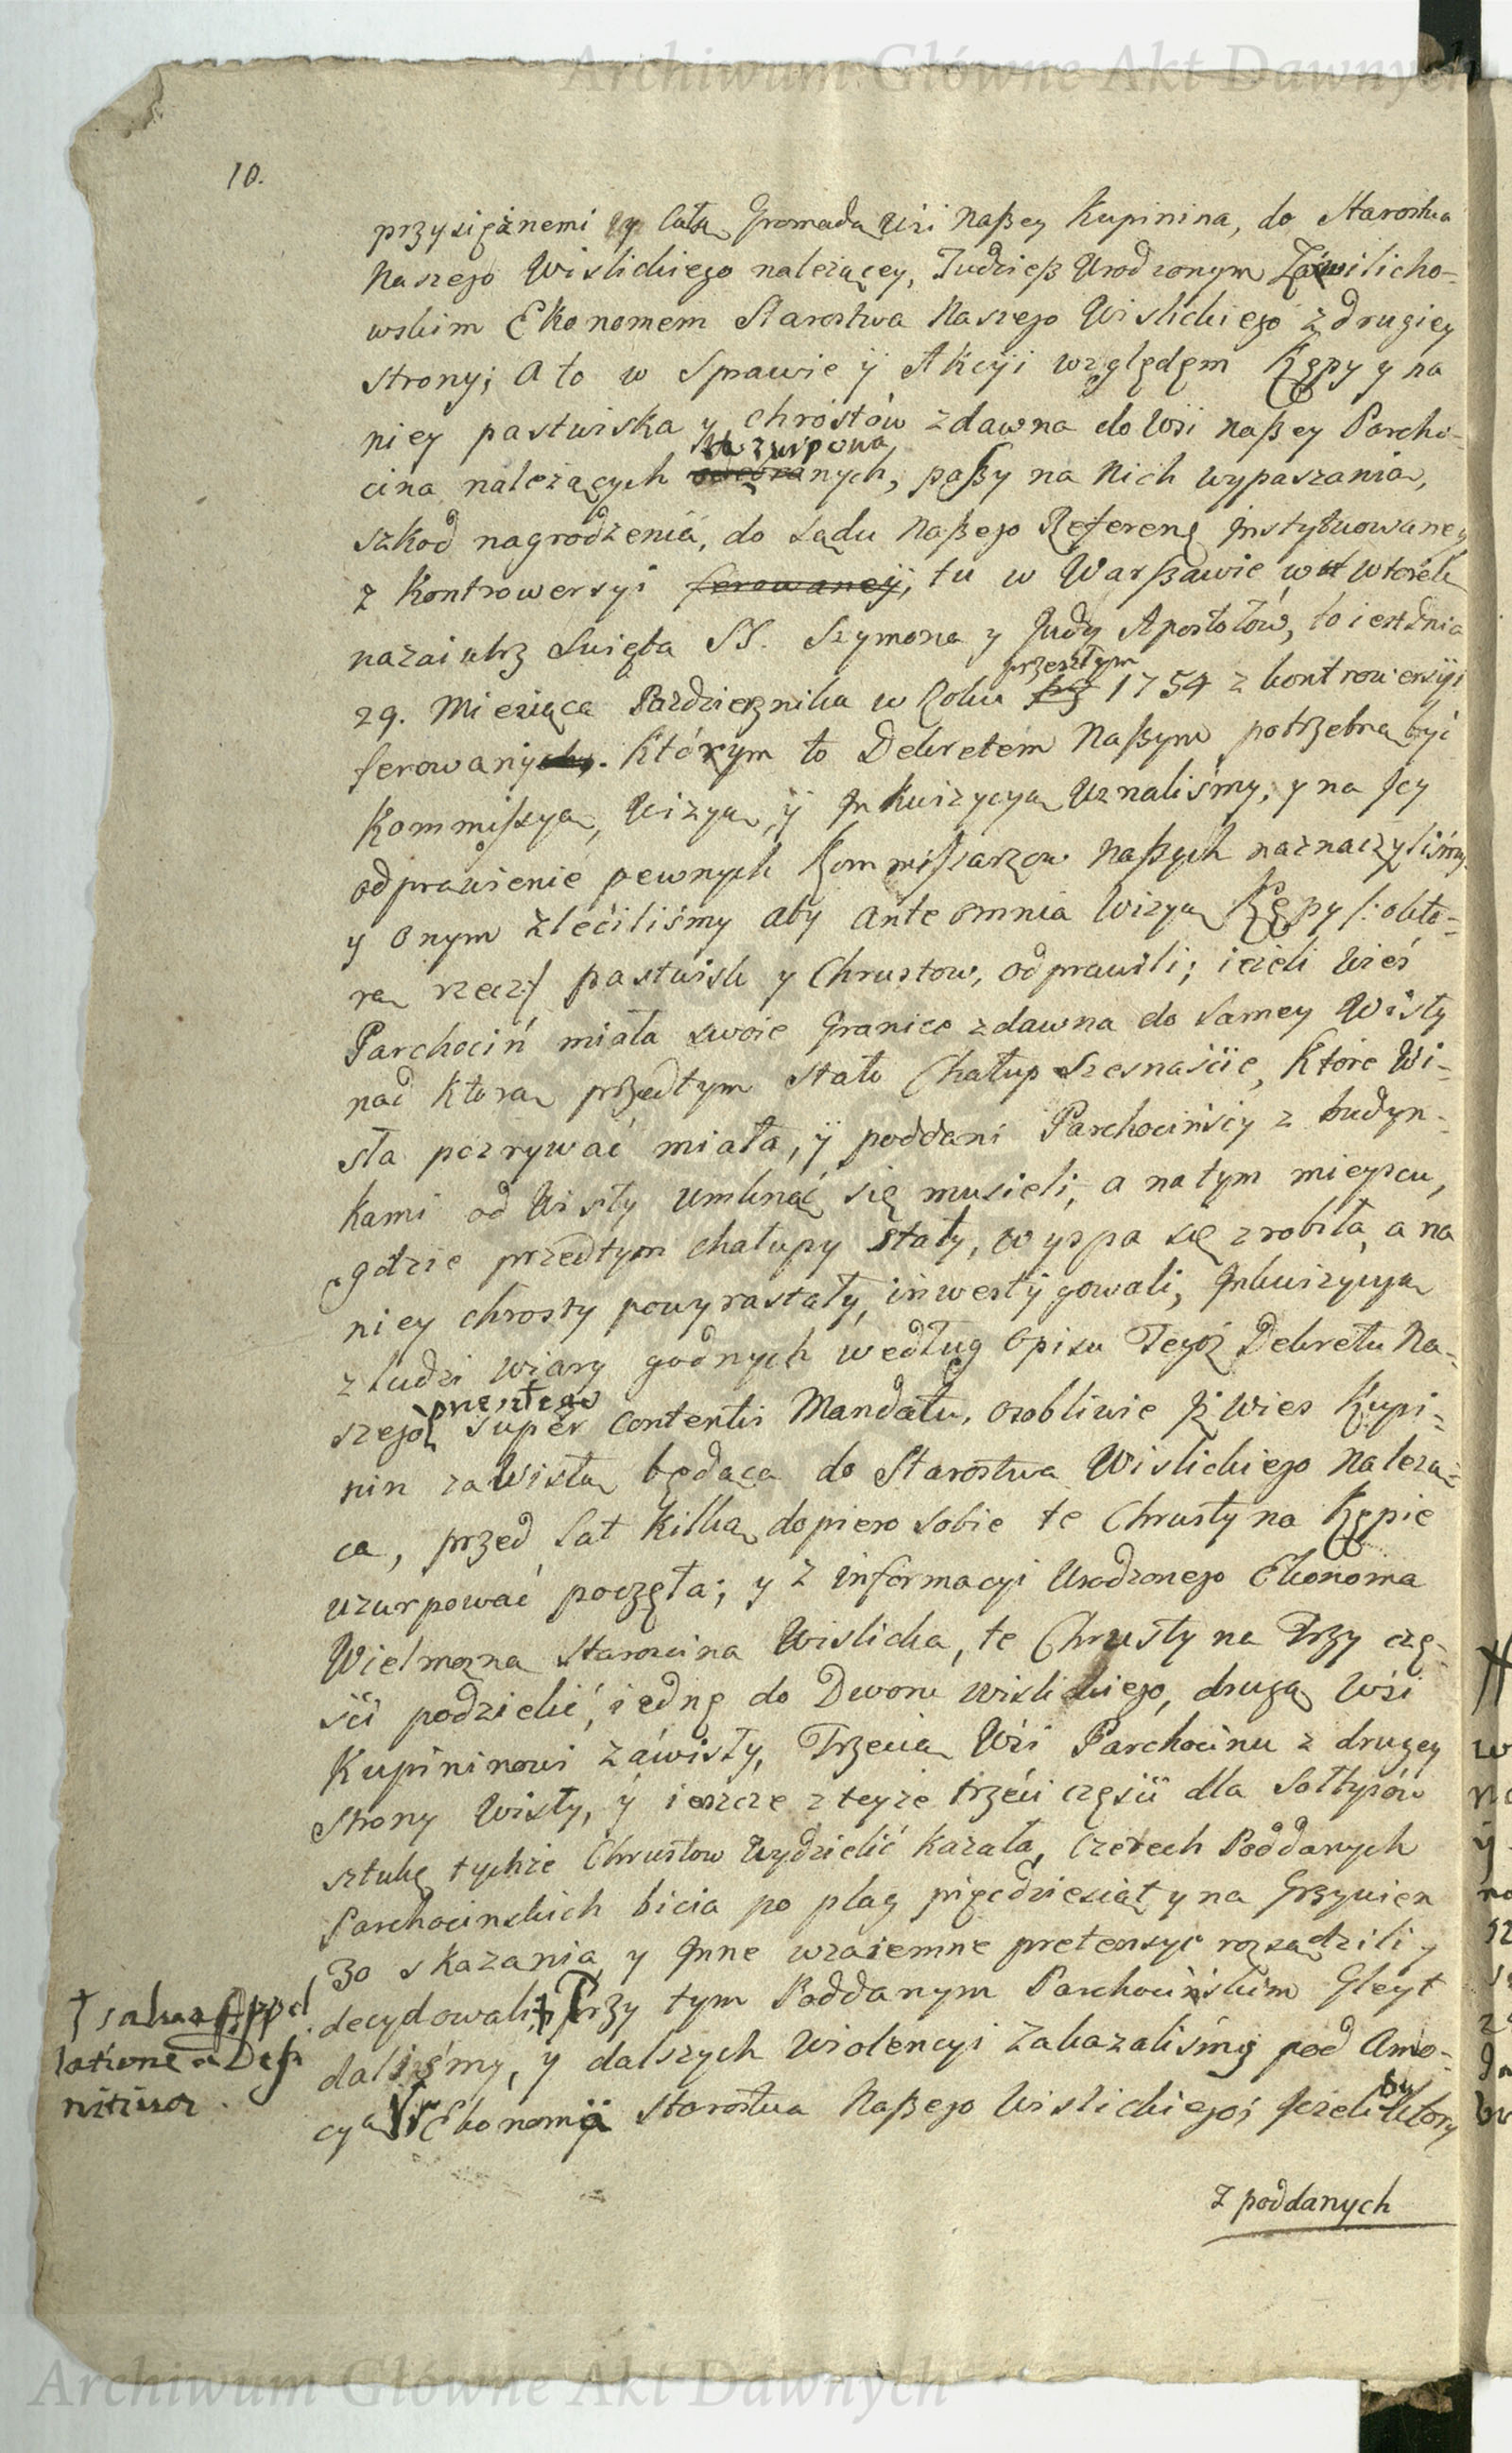 Archiwum Główne Akt Dawnych
10.
przysiężnemi y całą Gromadą Wsi Naßey Kupinina, do Starostwa
Naszego Wislickiego należącey, Tudzieß Urodzonym Zawilicho-
wskim Ekonomem Starostwa Naszego Wislickiego z drugiey
strony; A to w Sprawie ÿ Akcyi względem Kępy y na
niey pastwiska y chrostów zdawna do Wsi Naßey Parcho-
uzurpowa
cina należących odebranych, paßy na nich wypaszania,
szkod nagrodzenia, do Sądu Naßego Referen: Instytuowaney
z Kontrowersyi ferowaneÿ, tu w Warßawie w Wtorek
nazaiutrz Swięta SS. Szymona y Judy Apostołów, to iest dnia
przeszłym
29. Miesiąca Pazdziernika w Roku 1754 z kontrowersyi
ferowanych. Którym to Dekretem Naßym potrzebną być
Kommissyą, Wizyą, ÿ Inkwizycyą Uznaliśmy, y na Jey
odprawienie pewnych Kommissarzow Naßych naznaczyliśmy
y onym zleciliśmy aby ante omnia Wizyą Kępy /: o kto-
rą rzecz :/ pastwisk y Chrustow, odprawili; ieżeli Wieś
Parchociń miała swoie Granice zdawna do samey Wisły
nad którą przedtym stało Chałup szesnaście, które Wi-
sła pozrywać miała, ÿ poddani Parchocińscy z budyn-
kami od Wisły umknąć się musieli, a na tym mieyscu,
gdzie przedtym chałupy stały, wyspa się zrobiła, a na
niey chrosty powyrastały, inwestygowali, Inkwizycyą
z ludzi wiary godnych według Opisu Tegoż Dekretu Na-
przeszłego
szego super contentis Mandatu, osobliwie Iż Wies Kupi-
nin za Wisłą będąca do Starostwa Wislickiego Należą-
ca, przed lat kilką dopiero sobie te Chrusty na Kępie
uzurpować poczęła; y z informacyi Urodzonego Ekonoma
Wielmożna Starościna Wislicka, te Chrusty na Trzy czę-
ści podzielić, iednę do Dworu Wislickiego, drugą Wsi
Kupininowi za Wisły, Trzecią Wsi Parchocinu z drugiey
strony Wisły, ÿ ieszcze z teyże trzeci części dla Sołtysów
sztukę tychże Chrustow wydzielić kazała, czterech Poddanych
Parchocinskich bicia po plag pięćdziesiąt y na Grzywien
30 skazania, y Inne wzaiemne pretensye rozsądzili y
decydowali, † Przy tym Poddanym Parchocińskim Gleyt
daliśmy, y dalszych Wiolencyi zakazaliśmy pod Amo-
cyą Ekonomÿi Starostwa Naßego Wislickiego; Jeżeli by ktory
† salva Appel
latione a Defi
nitiva.
z poddanych
Archiwum Główne Akt Dawnych